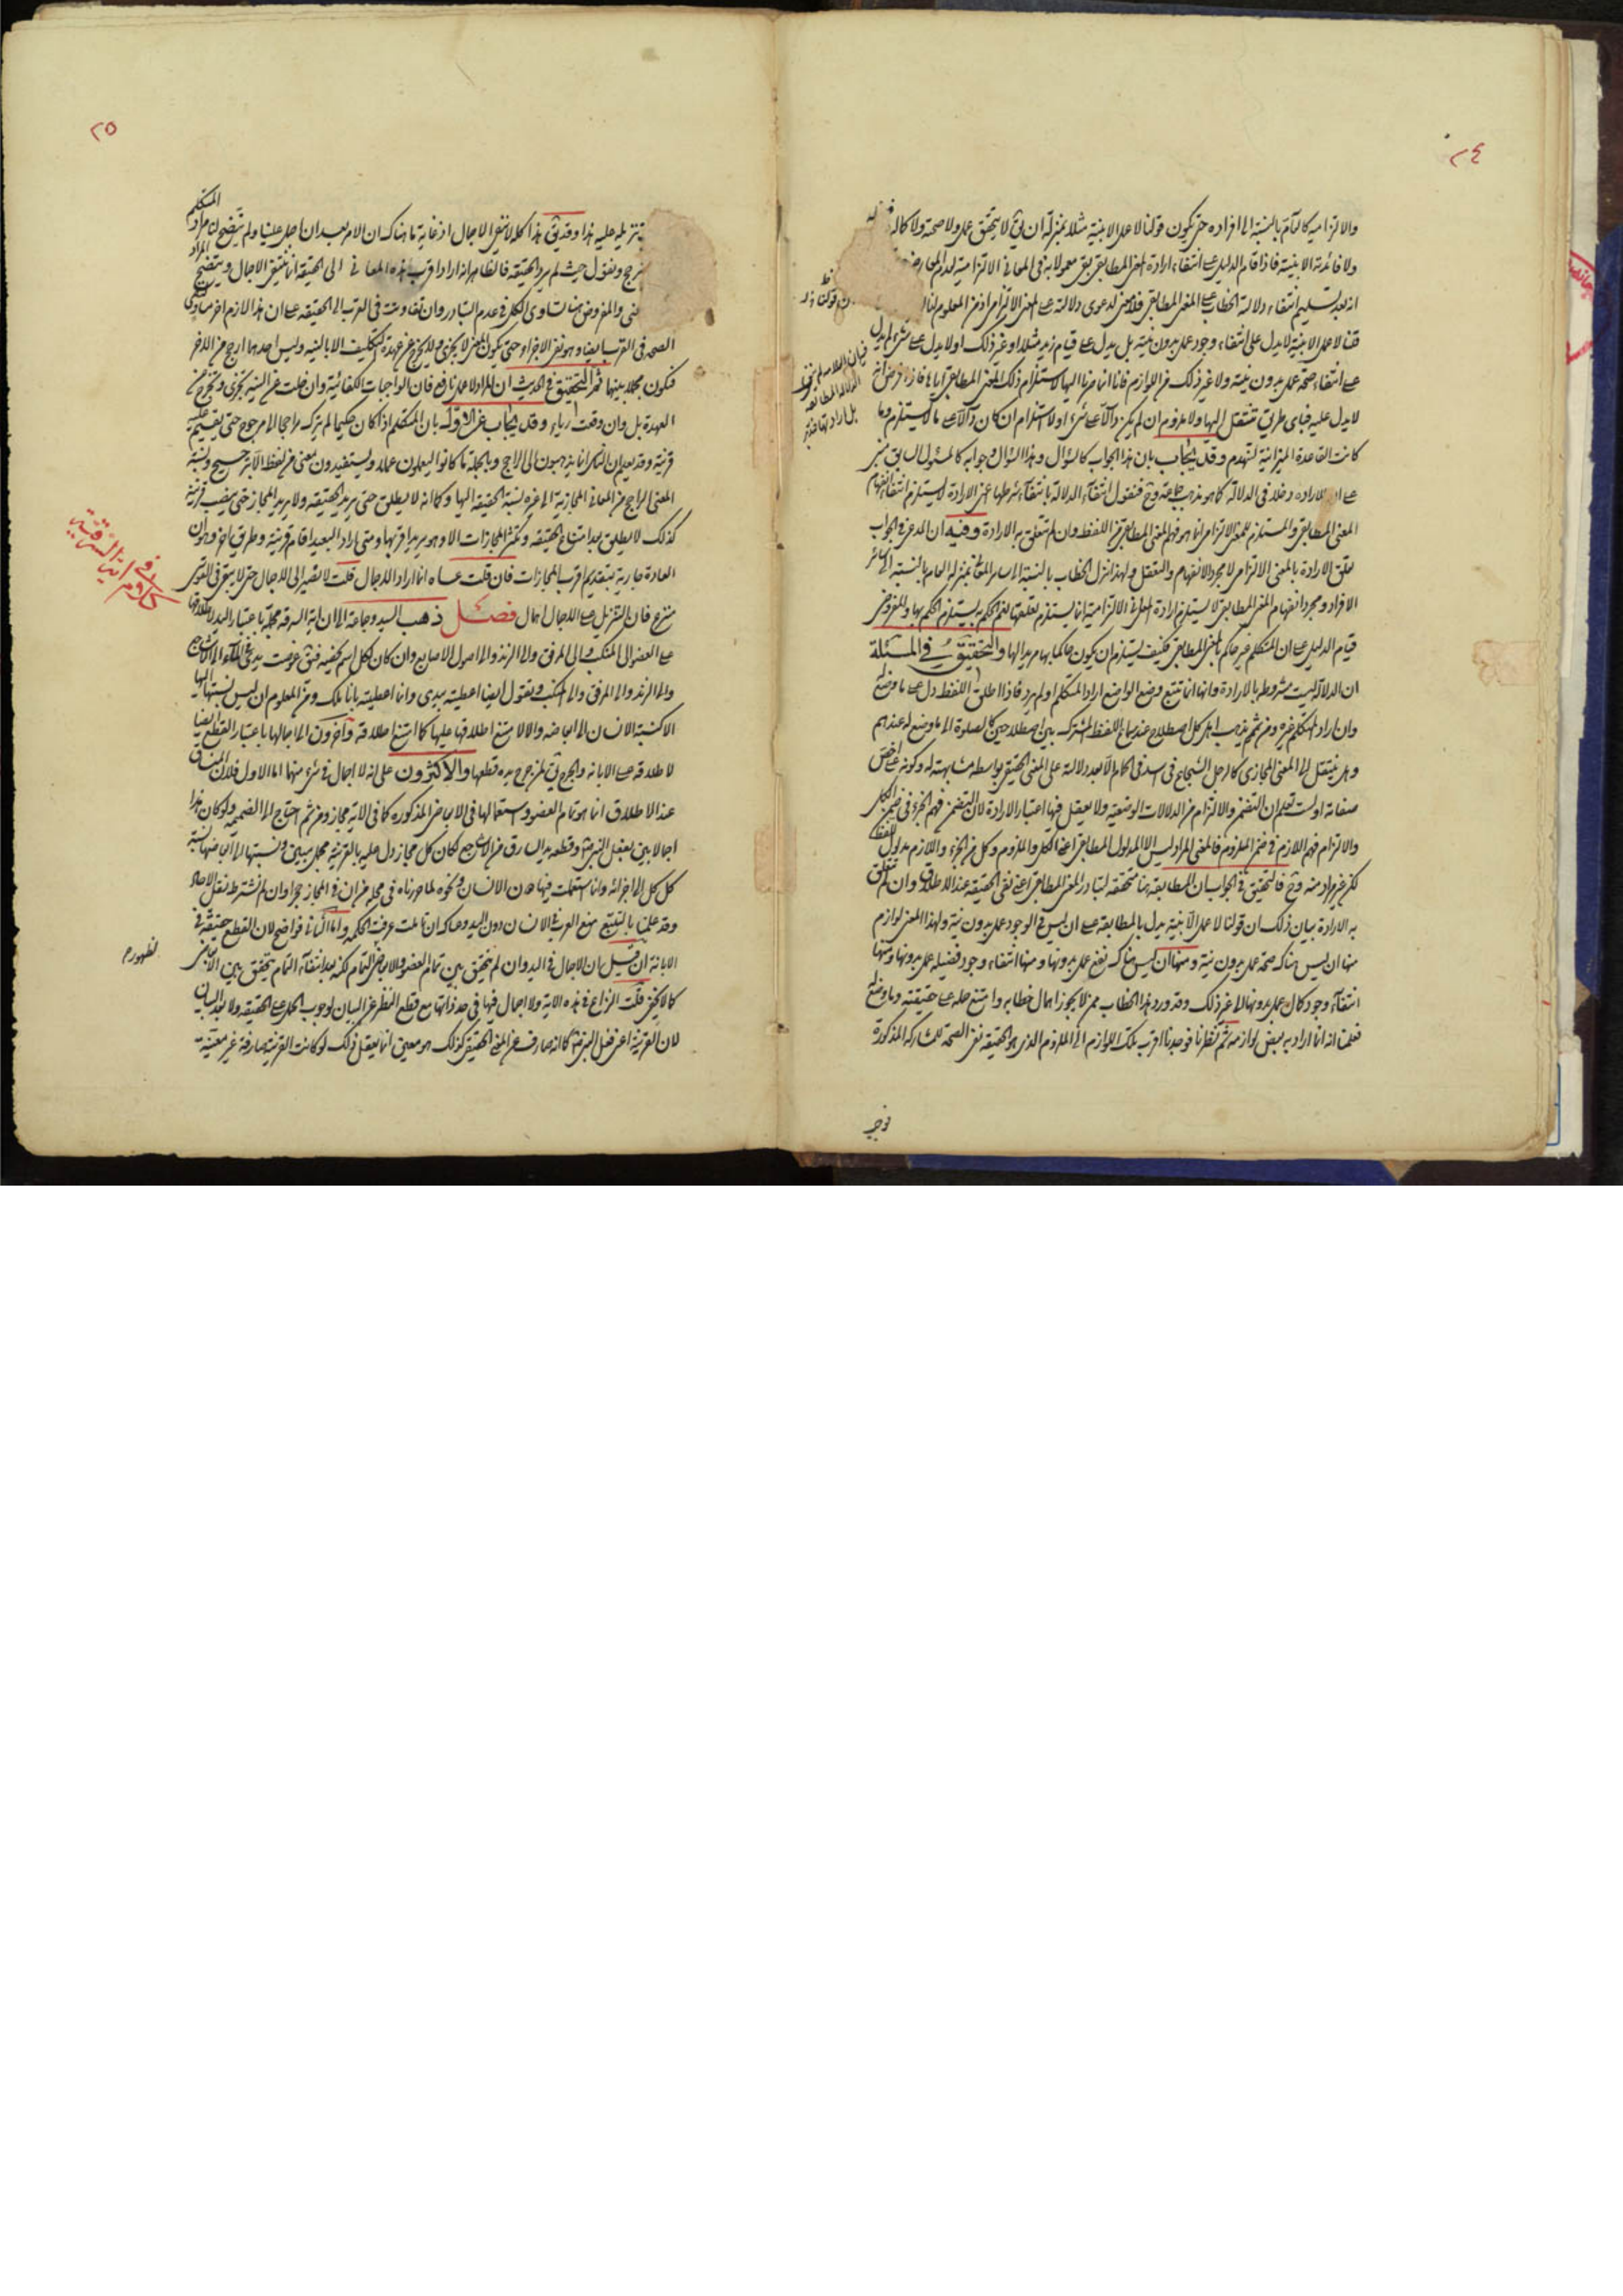 ٢٤
والالتزامية كالتام بالنسبة الى افراده حتى يكون قولنا لا عمل الا بنية مثلا بمنزلة ان يق لا يتحقق عمل ولا صحته ولا كماله
ولا فائدته الا بنية فاذا قام الدليل على انتفاء ارادة المعنى المطابقى بقى معمولا به فى المعانى الالتزامية
انه بعد تسليم انتفاء دلالة الخطاب على المعنى المطابقى فلا معنى لدعوى دلالته على المعنى الالتزامى اذ من المعلوم ان
قولنا لا عمل الا بنية لا يدل على انتفاء وجود عمل بدون نية بل يدل على قيام زيد مثلا او غير ذلك اولا يدل على شىء لم يدل
على انتفاء صحة عمل بدون نية ولا غير ذلك من اللوازم فانا انما صرنا اليها لاستلزام ذلك المعنى المطابقى اياها فاذا فرض انه
لا يدل عليه فباى طريق تنتقل اليها ولا ملزوم ان لم يكن دالا على شىء او لا استلزام ان كان دالا على ما لا يستلزمه وما
كانت القاعدة الميزانية لتهدم وقد يجاب بان هذا الجواب كالسؤال وهذا السؤال وجوابه كالسؤال السابق مبنى
على ان للارادة دخلا فى الدلالة كما هو مذهب جماعة وح فنقول انتفاء الدلالة بانتفاء شرطها اعنى الارادة لا يستلزم انتفاء انفهام
المعنى المطابقى والمستلزم للمعنى الالتزامى انما هو فهم المعنى المطابقى من اللفظ وان لم تتعلق به الارادة وفيه ان المدعى فى الجواب
تعلق الارادة بالمعنى الالتزامى لا مجرد الانفهام والتعقل ولهذا نزل الخطاب بالنسبة الى سائر المعانى بمنزلة العام بالنسبة الى سائر
الافراد ومجرد انفهام المعنى المطابقى لا يستلزم ارادة المعانى الالتزامية انما يستلزم تعقلها نعم الحكم به يستلزم الحكم بها والمفروض
قيام الدليل على ان المتكلم غير حاكم بالمعنى المطابقى فكيف يستلزم ان يكون حاكما بها مريدا لها والتحقيق فى المسئلة
ان الدلالة ليست مشروطة بالارادة وانها انما تتبع وضع الواضع اراد المتكلم او لم يرد فاذا اطلق اللفظ دل على ما وضع له
وان اراد المتكلم غيره ومن ثم يذهب اهل كل اصطلاح عند سماع اللفظ المشترك بين اصطلاحين كالصلوة الى ما وضع له عندهم
وهل ينتقل الى المعنى المجازى كالرجل الشجاع فى اسد فى الحمام الا بعد دلالته على المعنى الحقيقى بواسطة مشابهته له وكونه على اخص
صفاته اولست تعلم ان التضمن والالتزام من الدلالات الوضعية ولا يعقل فيها اعتبار الارادة لان التضمن فهم الجزء فى ضمن الكل
والالتزام فهم اللازم فى ضمن الملزوم فالمعنى المراد ليس الا المدلول المطابقى اعنى الكل والملزوم وكل من الجزء واللازم مدلول اللفظ
لكن غير مراد منه وح فالتحقيق فى الجواب ان المطابقة هنا متحققة لتبادر المعنى المطابقى اعنى نفى الحقيقة عند الاطلاق وان لم تتعلق
به الارادة بيان ذلك ان قولنا لا عمل الا بنية يدل بالمطابقة على ان ليس فى الوجود عمل بدون نية ولهذا المعنى لوازم
منها ان ليس هناك صحة عمل بدون نية ومنها ان ليس هناك نفع عمل بدونها ومنها انتفاء وجود فضيلة عمل بدونها ومنها
انتفاء وجود كمال عمل بدونها الى غير ذلك وقد ورد هذا الخطاب ممن لا يجوز اهمال خطابه وامتنع حمله على حقيقته وما وضع له
فعلمنا انه انما اراد به بعض لوازمه ثم نظرنا فوجدنا اقرب تلك اللوازم الى الملزوم الذى هو الحقيقة نفى الصحة لمشاركة المذكورة
فوجب
٢٥
تنزيله عليه هذا وقد يق هذا كله لا ينفى الاجمال اذ غاية ما هناك ان الامر بعد ان اجمل علينا ولم يتضح لنا مراد المتكلم
ونقول حيث لم يرد الحقيقة فالظاهر انه اراد اقرب هذه المعانى الى الحقيقة انما ينتفى الاجمال ويتضح المراد
والمفروض هنا تساوى الكل فى عدم التبادر وان تفاوتت فى القرب الى الحقيقة على ان هذا لازم اخر مساوى
الصحة فى القرب ايضا وهو نفى الاجزاء حتى يكون المعنى لا يجزى ولا يخرج عن عهدة التكليف الا بالنية وليس احدهما ارجح من الاخر
فيكون مجملا بينهما ثم التحقيق فى الحديث ان المراد لا عمل نافع فان الواجبات الكفائية وان خلت عن النية تجزى وتخرج من
العهدة بل وان وقعت رياء وقد يجاب عن الاول بان المتكلم اذا كان حكيما لم يترك راجحا الى مرجوح حتى يقيم عليه
قرينة وقد يعلم ان الناس انما يذهبون الى الراجح وبالجملة ما كانوا ليعملون عملا ويستفيدون معنى من لفظ الا بترجيح ونسبة
المعنى الراجح من المعانى المجازية الى غيره نسبة الحقيقة اليها وكما انه لا يطلق حتى يريد الحقيقة ولا يريد المجاز حتى ينصب قرينة
كذلك لا يطلق بعد امتناع الحقيقة وتكثر المجازات الا وهو يريد اقربها ومتى اراد البعيد اقام قرينة وطريق اخر وهو ان
العادة جارية بتقديم اقرب المجازات فان قلت عساه انما اراد الاجمال قلت لا يصير الى الاجمال حتى لا يبقى فى القوس
منزع فان التنزيل على الاجمال اهمال فصل ذهب السيد وجماعة الى ان اية السرقة مجملة باعتبار اليد لاطلاقها
على العضو الى المنكب والى المرفق والى الزند والى اصول الاصابع وان كان لكل اسم يخصه فيق غوصت يدى فى الماء الى الاشاجع
والى الزند والى المرفق والى المنكب ويقول ايضا اعطيته بيدى وانما اعطيته بانامله ومن المعلوم ان ليس نسبتها اليها
الا كنسبة الانسان الى ابعاضه والا لامتنع اطلاقها عليها كما امتنع اطلاقه واخرون الى اجمالها باعتبار القطع ايضا
لاطلاقه على الابانة والجرح يق لمن جرح يده قطعها والاكثرون على انه لا اجمال فى شىء منهما اما الاول فلان المنساق
عند الاطلاق انما هو تمام العضو واستعمالها فى الابعاض المذكورة كما فى الاية مجاز ومن ثم احتاج الى الضميمة ولو كان هذا
اجمالا بين بفعل النبى ص وقطعه يد السارق من الاشاجع لكان كل مجاز دل عليه بالقرينة مجمل مبين ونسبتها الى ابعاضها نسبة
كل كل الى اجزائه وانما استعملت فيها دون الانسان ونحوه لما حررناه فى محله من ان فى المجاز حجرا وان لم نشترط نقل الاحاد
وقد علمنا بالتتبع منع العرب فى الانسان دون اليد وعساك ان تاملت عرفت الحكمة واما الثانى فواضح لان القطع حقيقة فى
الابانة ان قيل ان الاجمال فى اليد وان لم يتحقق بين تمام العضو والابعاض لظهور التمام لكنه بعد انتفاء التمام يتحقق بين الابعاض
كما لا يخفى قلت النزاع فى هذه الاية ولا اجمال فيها فى حد ذاتها مع قطع النظر عن البيان لوجوب الحمل على الحقيقة ولا بعد البيان
لان القرينة اعنى فعل النبى ص كما انه صارف عن المعنى الحقيقى كذلك هو معين انما يعقل ذلك لو كانت القرينة صارفة غير معينة
كلام فى اية السرقة